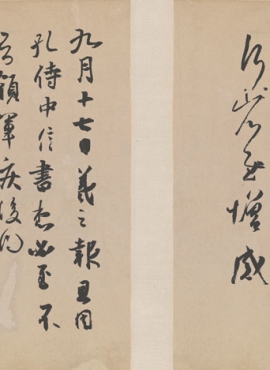 何省慰增感
九月十七日羲之報且因
孔侍中信書想必至不
知領軍疾後問